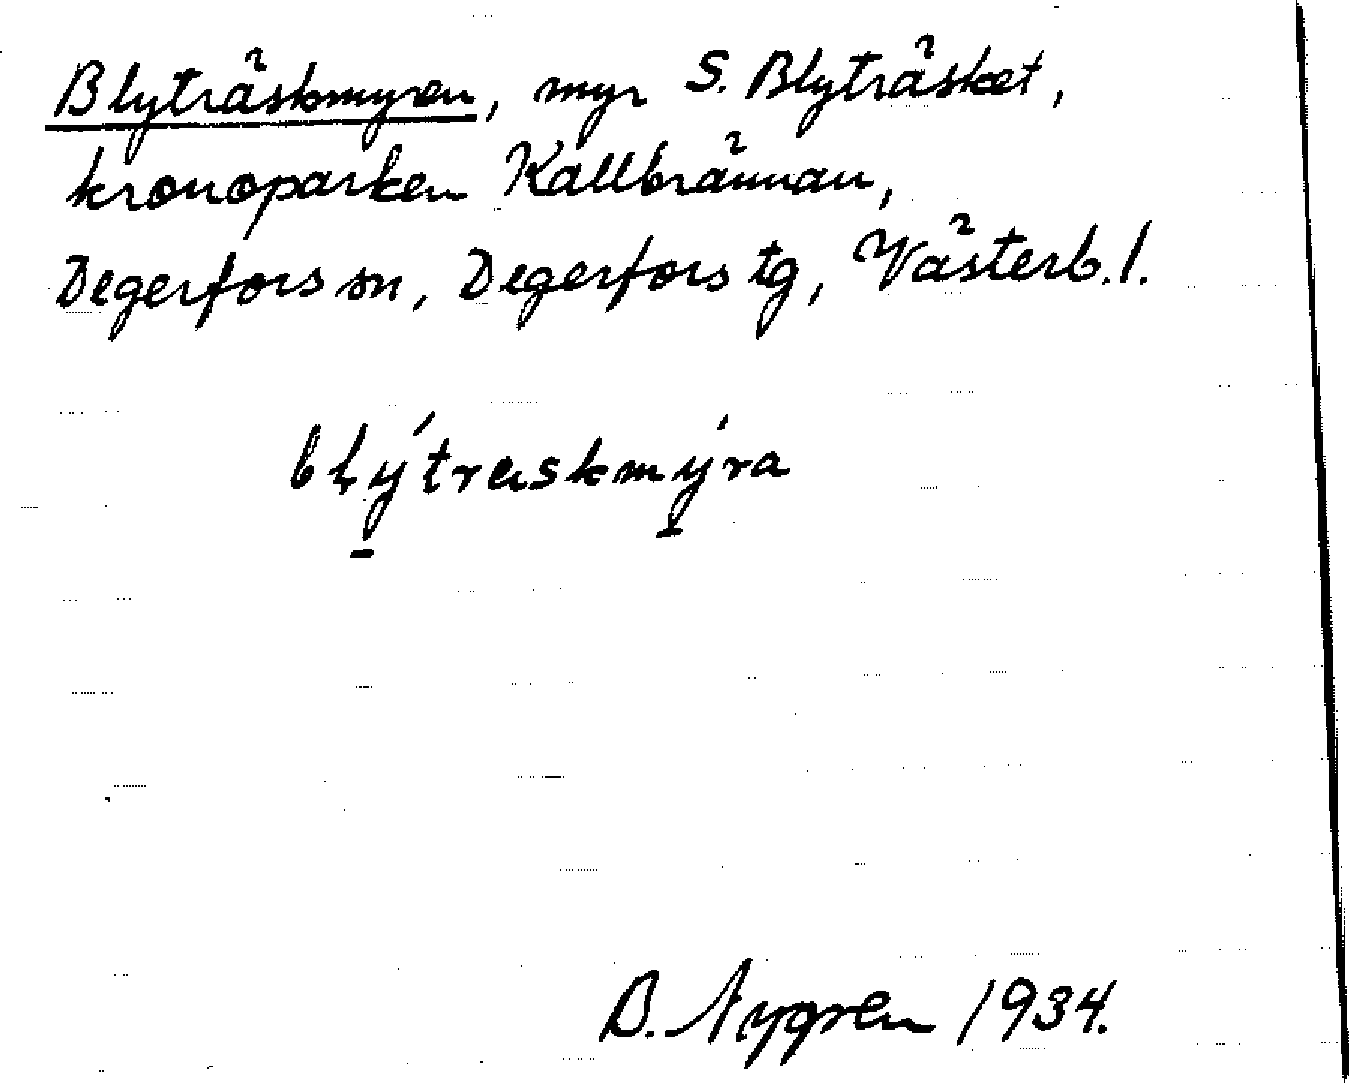 Blyträskmyren, myr S. Blyträsket,
kronoparken Kallbrännan,
Degerfors sn, Degerfors tg, Västerb. l.
blýtræskmýra
B. Nygren 1934.